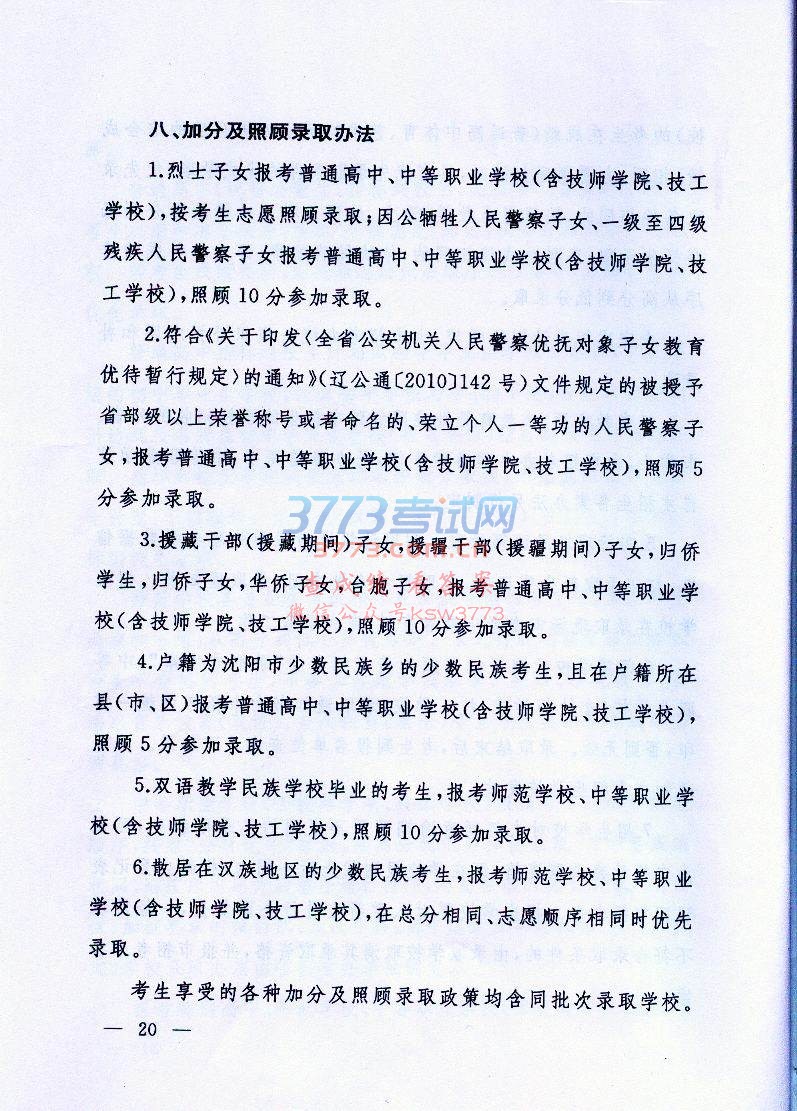 八、加分及照顾录取办法
1.烈士子女报考普通高中、中等职业学校(含技师学院、技工
学校),按考生志愿照顾录取;因公牺牲人民警察子女、一级至四级
残疾人民警察子女报考普通高中、中等职业学校(含技师学院、技
工学校),照顾10分参加录取。
2.符合《关于印发〈全省公安机关人民警察优抚对象子女教育
优待暂行规定〉的通知》(辽公通〔2010〕142号)文件规定的被授予
省部级以上荣誉称号或者命名的、荣立个人一等功的人民警察子
女,报考普通高中、中等职业学校(含技师学院、技工学校),照顾5
分参加录取。
3773考试网
3.援藏干部(援藏期间)子女,援疆干部(援疆期间)子女,归侨
3773.com.cn
学生,归侨子女,华侨子女,台胞子女,报考普通高中、中等职业学
查成绩 看答案
校(含技师学院、技工学校),照顾10分参加录取。
微信公众号ksw3773
4.户籍为沈阳市少数民族乡的少数民族考生,且在户籍所在
县(市、区)报考普通高中、中等职业学校(含技师学院、技工学校),
照顾5分参加录取。
5.双语教学民族学校毕业的考生,报考师范学校、中等职业学
校(含技师学院、技工学校),照顾10分参加录取。
6.散居在汉族地区的少数民族考生,报考师范学校、中等职业
学校(含技师学院、技工学校),在总分相同、志愿顺序相同时优先
录取。
考生享受的各种加分及照顾录取政策均含同批次录取学校。
— 20 —